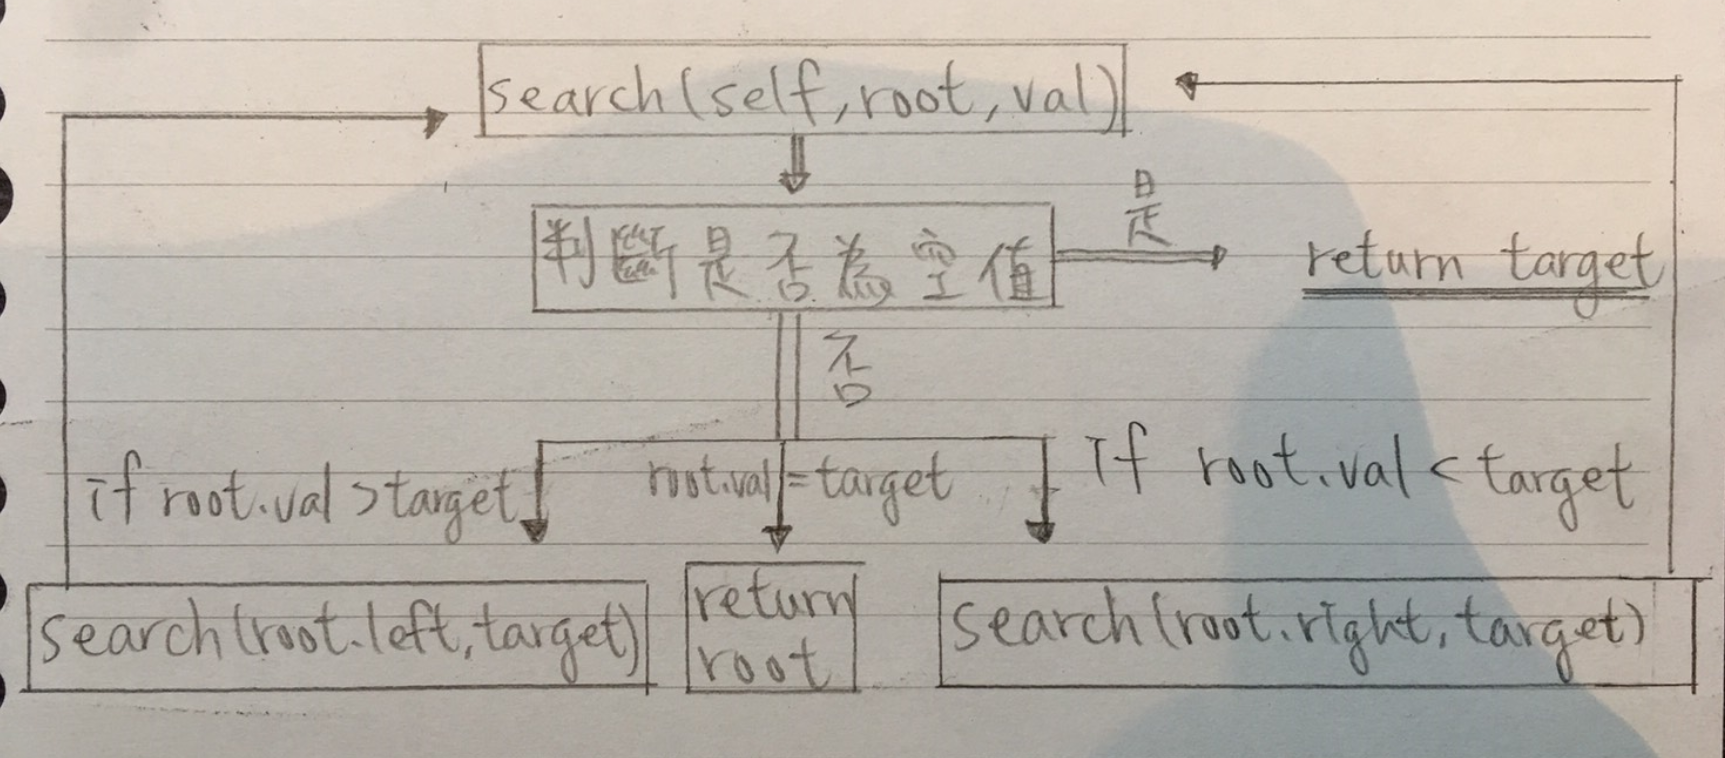 search(self,root,val)
是
判斷是否為空值
return target
否
if root.val>target
root.val=target
If root.val<target
search(root.left,target)
return
root
search(root.right,target)